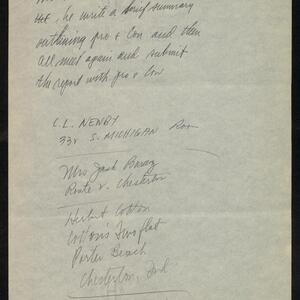 Hef, he write a brief summary
outlining pro & Con and then
all meet again and submit
the report with pro & Con
C. L. NEWBY
332 S. MICHIGAN Room
Mrs Jack
Route 2. Chesterton
Herbert Cotton
Cotton's Two flat
Porter Beach
Chesterton, Ind